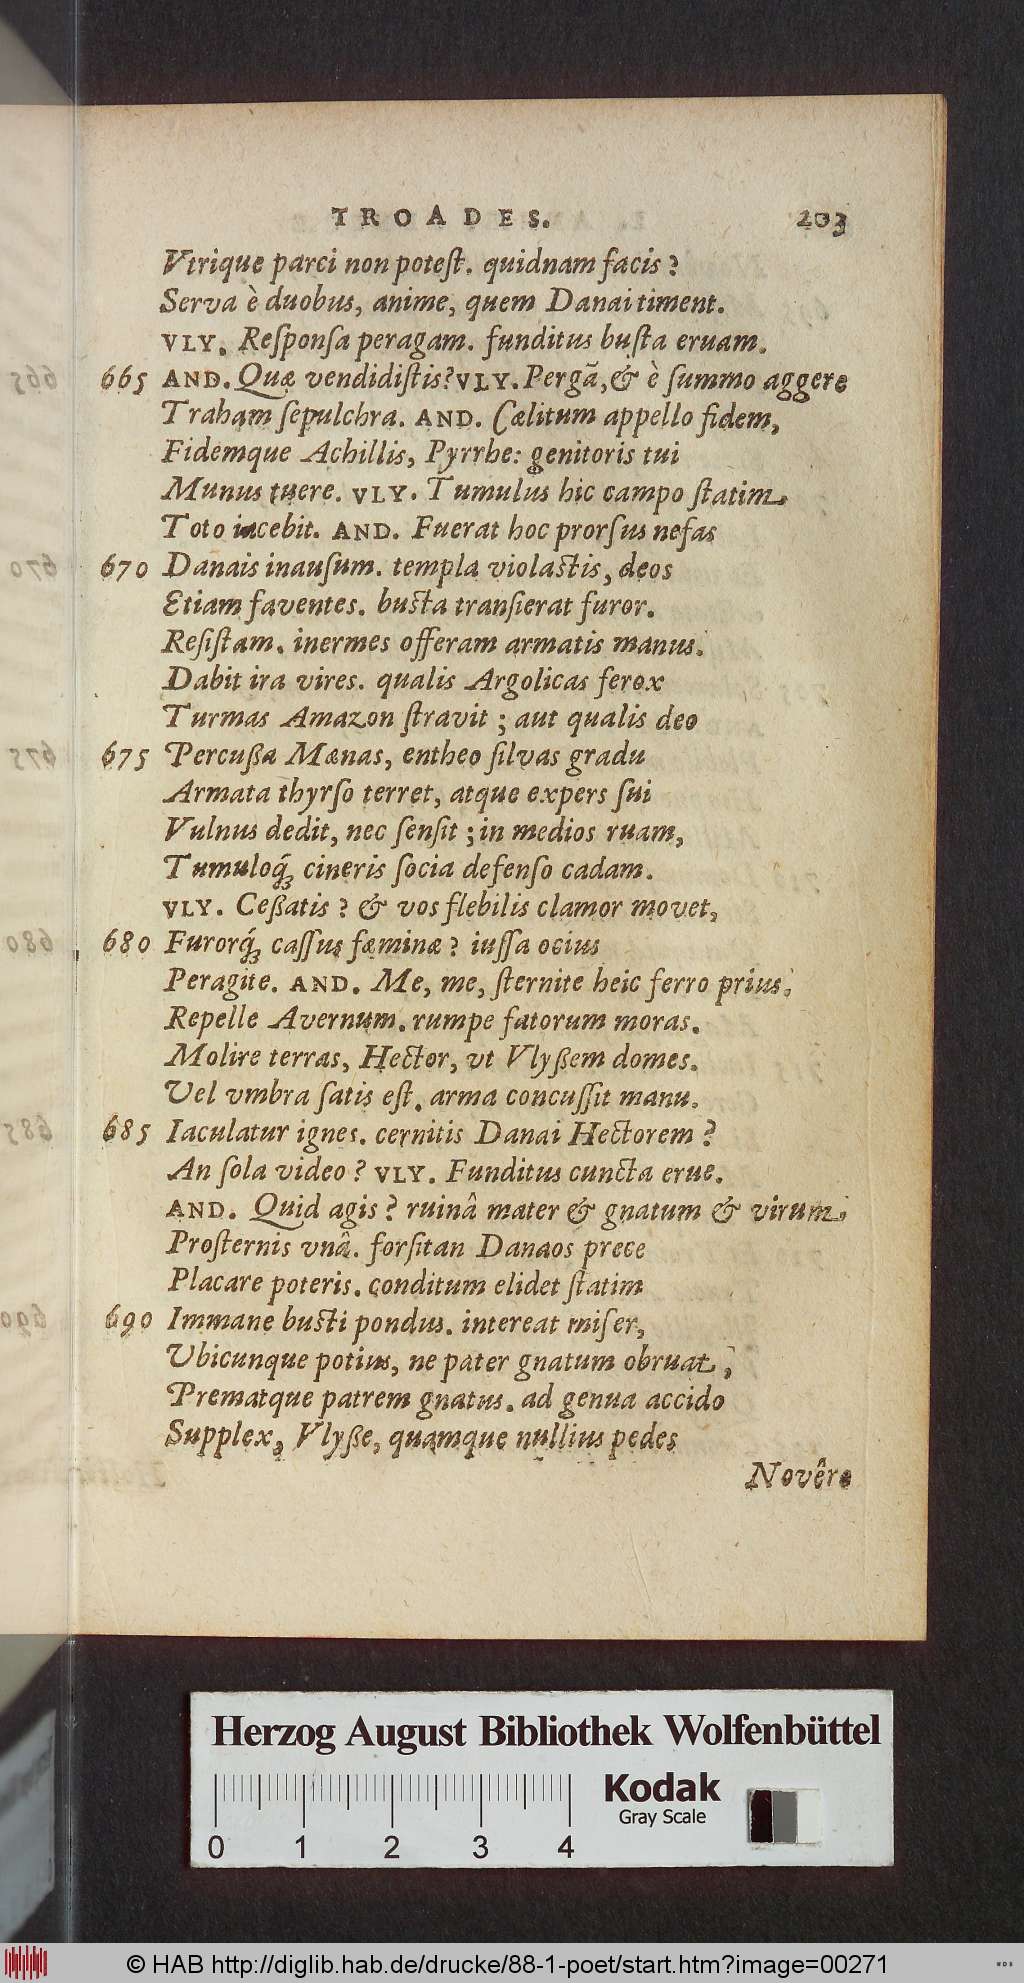 TROADES. 203
Vtrique parci non potest. quidnam facis?
Serva è duobus, anime, quem Danai timent.
VLY. Responsa peragam. funditus busta eruam.
665 AND. Quæ vendidistis? VLY. Pergã, & è summo aggere
Traham sepulchra. AND. Cælitum appello fidem,
Fidemque Achillis, Pyrrhe: genitoris tui
Munus tuere. VLY. Tumulus hic campo statim
Toto iacebit. AND. Fuerat hoc prorsus nefas
670 Danais inausum. templa violastis, deos
Etiam faventes. busta transierat furor.
Resistam. inermes offeram armatis manus.
Dabit ira vires. qualis Argolicas ferox
Turmas Amazon stravit; aut qualis deo
675 Percußa Mænas, entheo silvas gradu
Armata thyrso terret, atque expers sui
Vulnus dedit, nec sensit; in medios ruam,
Tumuloq́; cineris socia defenso cadam.
VLY. Ceßatis? & vos flebilis clamor movet,
680 Furorq́; cassus fæminæ? iussa ocius
Peragite. AND. Me, me, sternite heic ferro prius.
Repelle Avernum. rumpe fatorum moras.
Molire terras, Hector, vt Vlyßem domes.
Vel vmbra satis est. arma concussit manu.
685 Iaculatur ignes. cernitis Danai Hectorem?
An sola video? VLY. Funditus cuncta erue.
AND. Quid agis? ruinâ mater & gnatum & virum
Prosternis vnâ. forsitan Danaos prece
Placare poteris. conditum elidet statim
690 Immane busti pondus. intereat miser,
Vbicunque potius, ne pater gnatum obruat,
Prematque patrem gnatus. ad genua accido
Supplex, Vlyße, quamque nullius pedes
Novêre
665
670
675
680
685
690
Herzog August Bibliothek Wolfenbüttel
0 1 2 3 4
Kodak
Gray Scale
© HAB http://diglib.hab.de/drucke/88-1-poet/start.htm?image=00271